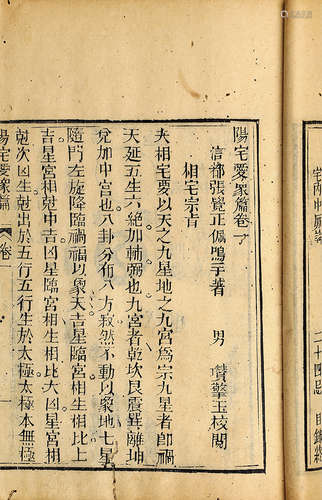 陽宅愛衆篇卷一
信都張覺正佩鴞子著 男 擎玉校閱
相宅宗旨
夫相宅要以天之九星地之九宮為宗九星者即禍
天延五生六絶加輔弼也九宮者乾坎艮震巽離坤
兌加中宮也八卦分布八方寂然不動以象地七星
隨門左旋降臨禍福以象天吉星臨宮相生相比上
吉星宮相尅中吉凶星臨宮相生相比大凶星宮相
尅次凶生尅出於五行五行生於太極太極本無極
陽宅愛衆篇 卷一